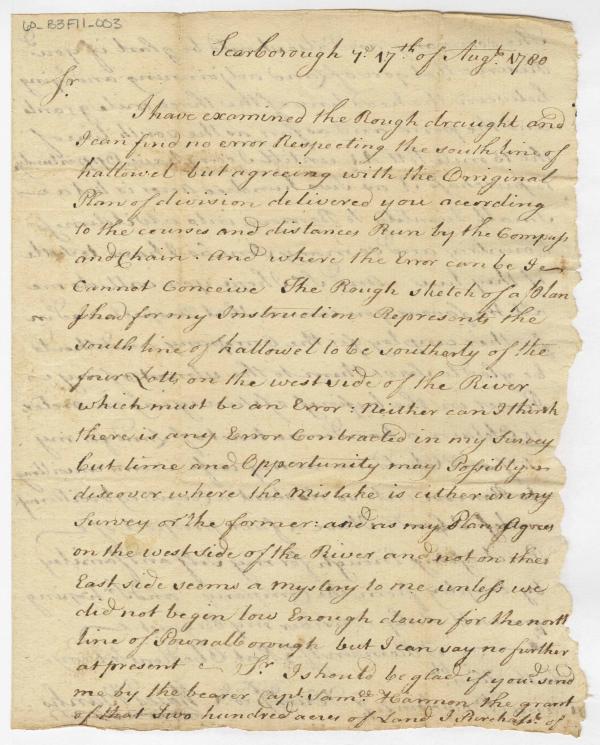 60_B3F11_003
Scarborough ye 17th of Augt 1780
Sr
I have examined the Rough draught and
I can find no error Respecting the south line of
hallowel but agreeing with the Original
Plan of division delivered you according
to the courses and distances Run by the Compass
and Chain. And where the Error can be I
Cannot Conceive The Rough sketch of a Plan
I had for my Instruction Represents the
south line of hallowel to be southerly of the
four Lotts on the west side of the River
which must be an Error: Neither can I think
there is any Error Contracted in my Survey
but time and Opportunity may Possibly
discover where the mistake is either in my
Survey or the former: and as my Plan Agrees
on the west side of the River and not on the
East side seems a mystery to me unless we
did not begin low Enough down for the north
line of Pownalborough but I can say no further
at present Sr I should be glad if you'd send
me by the bearer Capt. Samll Harmon the grant
of that Two hundred acres of Land I Purchasd of